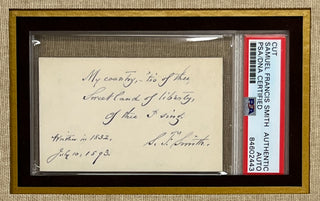 My country, 'tis of thee
Sweet land of liberty,
of thee I sing.
Written in 1832.
July 10, 1893.
S. F. Smith.
CUT
SAMUEL FRANCIS SMITH
AUTHENTIC
PSA/DNA CERTIFIED
AUTO
84602443
PSA